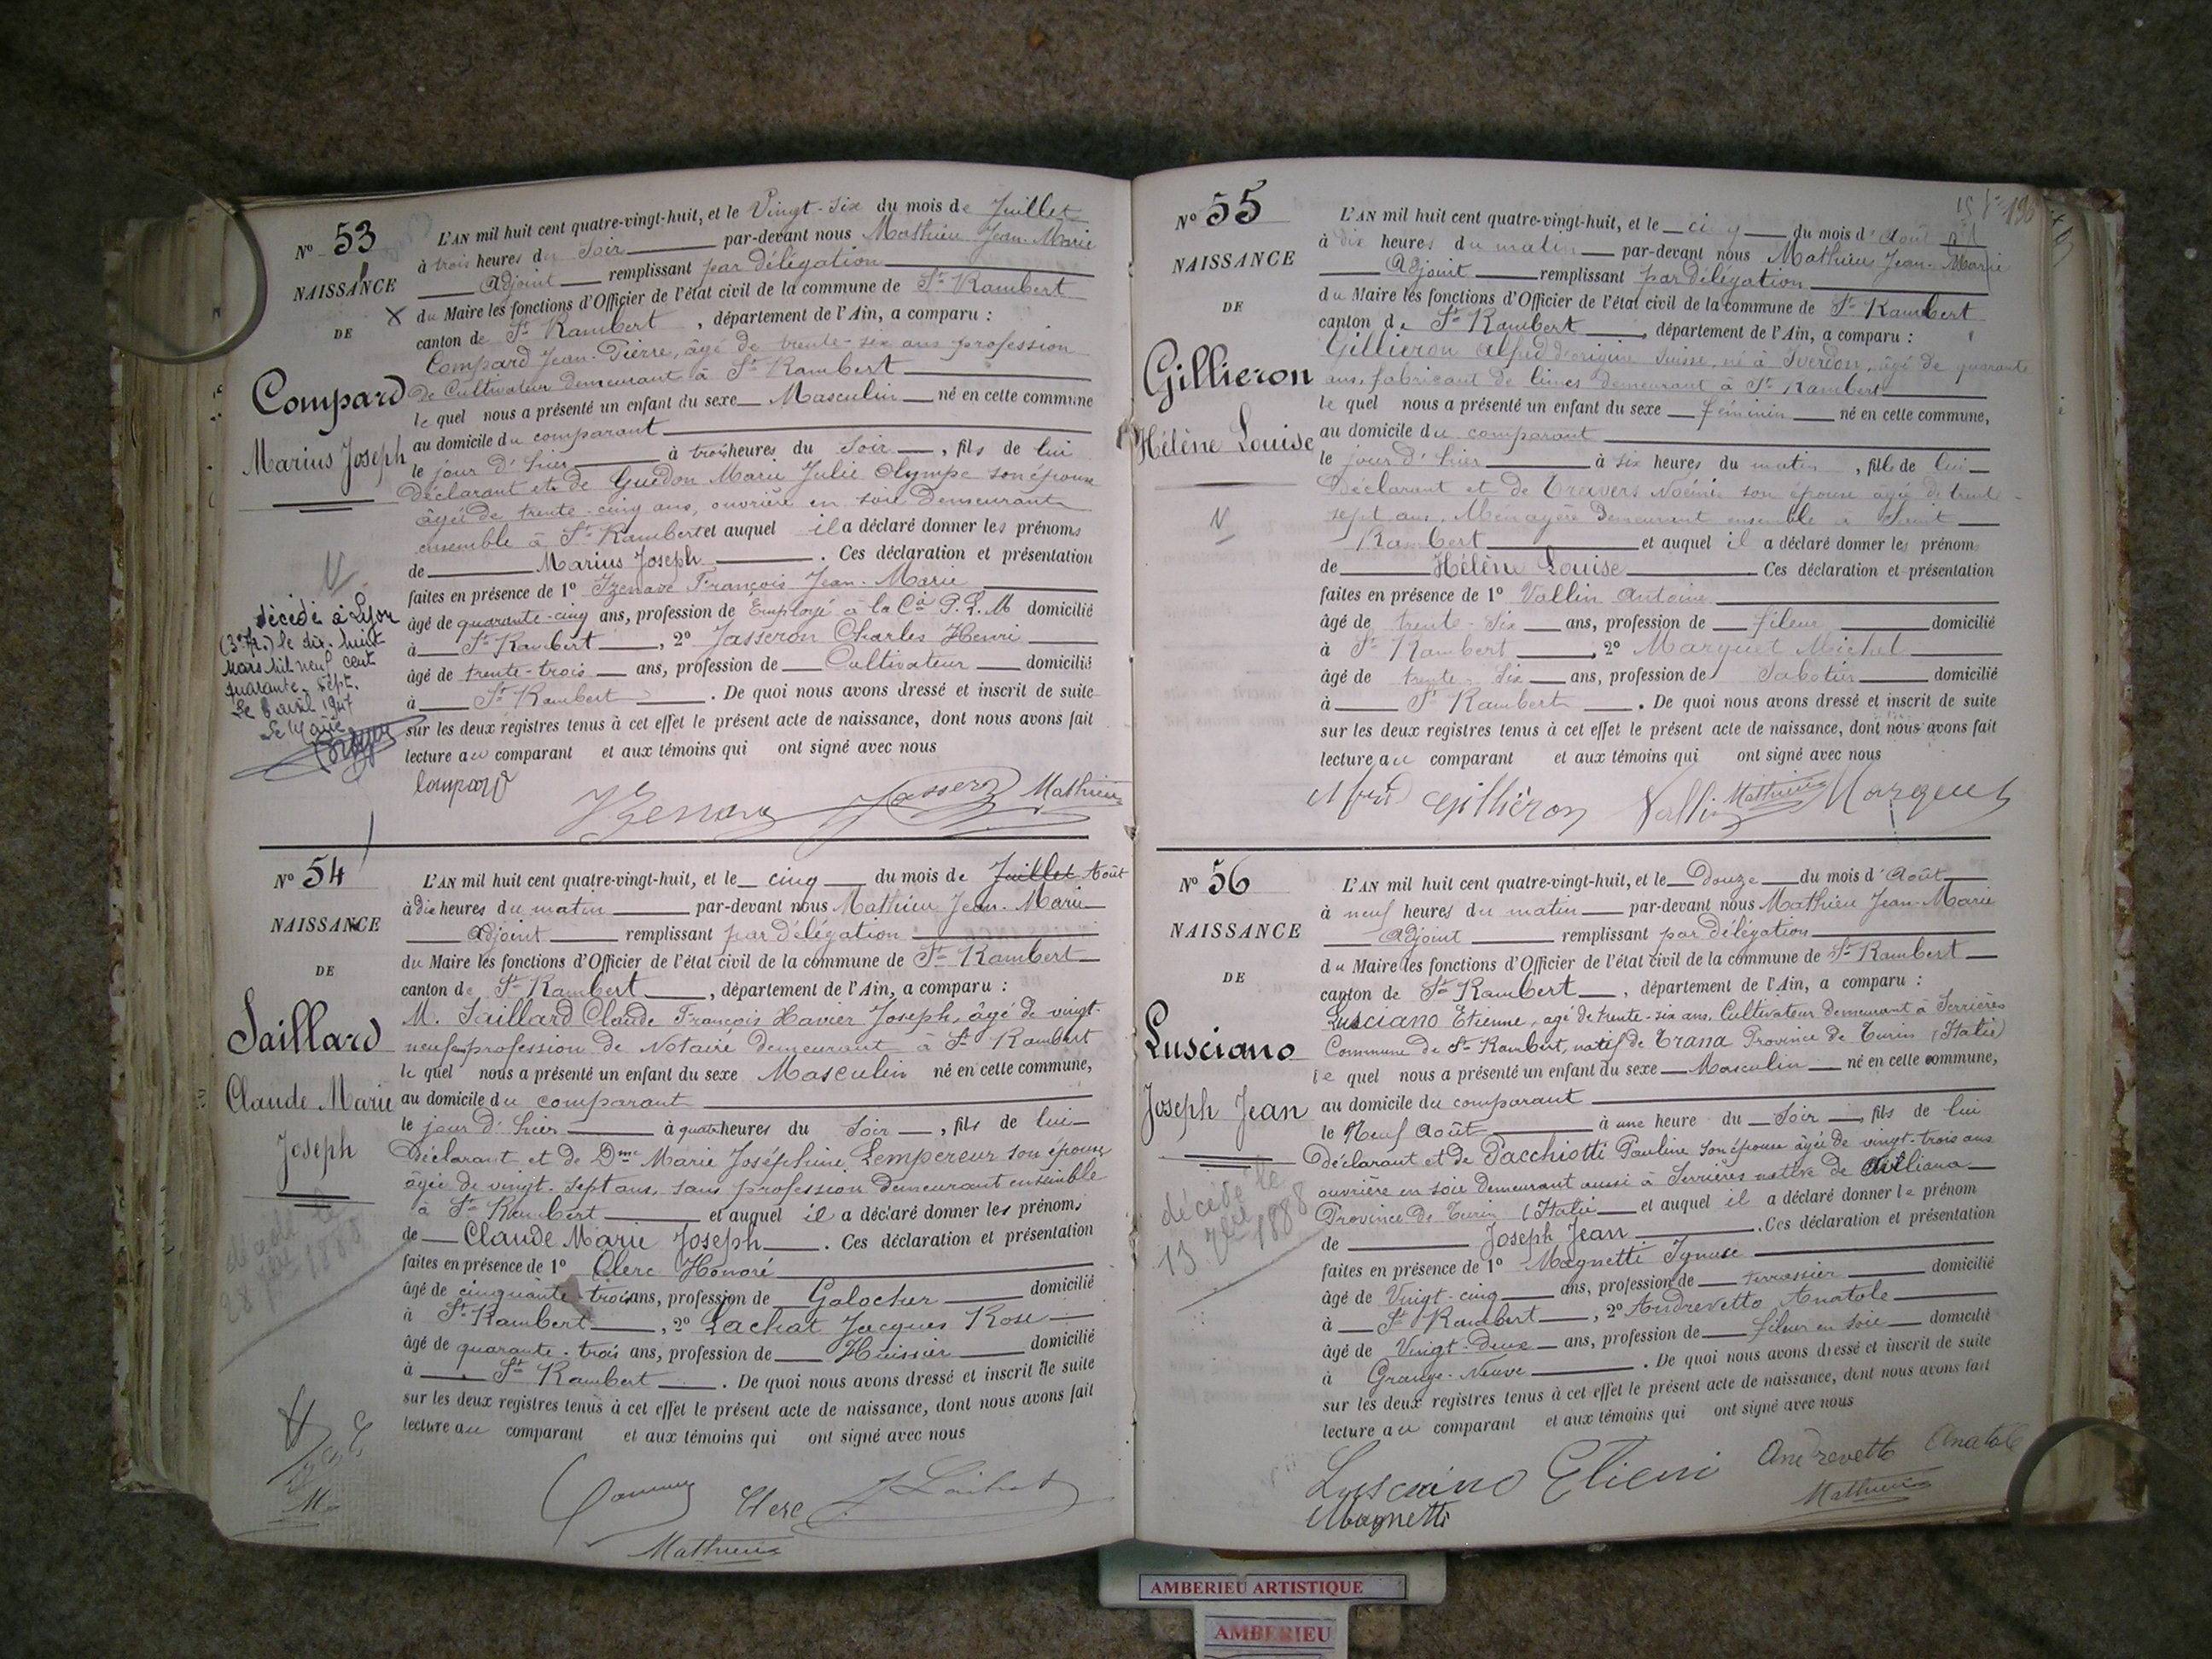 N° 53
NAISSANCE
DE
Compard
Marius Joseph
décédé à Lyon
(3e Ar.) le dix-huit
mars mil neuf cent
quarante-sept.
Le 8 avril 1947
Le Maire
L'AN mil huit cent quatre-vingt-huit, et le Vingt-six du mois de Juillet
à trois heures du Soir par-devant nous Mathieu Jean-Marie
Adjoint remplissant par délégation
du Maire les fonctions d'Officier de l'état civil de la commune de St Rambert
canton de St Rambert, département de l'Ain, a comparu :
Compard Jean-Pierre, âgé de trente-six ans profession
de Cultivateur demeurant à St Rambert
le quel nous a présenté un enfant du sexe Masculin né en cette commune
au domicile du comparant
le jour d'hier à trois heures du Soir, fils de lui
Déclarant et de Guédon Marie Julie Olympe son épouse
âgée de trente-cinq ans, ouvrière en soie demeurant
ensemble à St Rambert et auquel il a déclaré donner les prénoms
de Marius Joseph. Ces déclaration et présentation
faites en présence de 1° Izenave François Jean-Marie
âgé de quarante-cinq ans, profession de Employé à la Cie P.L.M domicilié
à St Rambert, 2° Jasseron Charles Henri
âgé de trente-trois ans, profession de Cultivateur domicilié
à St Rambert. De quoi nous avons dressé et inscrit de suite
sur les deux registres tenus à cet effet le présent acte de naissance, dont nous avons fait
lecture au comparant et aux témoins qui ont signé avec nous
Compard
Mathieu
N° 54
NAISSANCE
DE
Saillard
Claude Marie
Joseph
L'AN mil huit cent quatre-vingt-huit, et le cinq du mois de Juillet Août
à dix heures du matin par-devant nous Mathieu Jean-Marie
Adjoint remplissant par délégation
du Maire les fonctions d'Officier de l'état civil de la commune de St Rambert
canton de St Rambert, département de l'Ain, a comparu :
M. Saillard Claude François Xavier Joseph, âgé de vingt-
neuf ans profession de Notaire demeurant à St Rambert
le quel nous a présenté un enfant du sexe Masculin né en cette commune,
au domicile du comparant
le jour d'hier à quatre heures du Soir, fils de lui
Déclarant et de Dme Marie Joséphine Lempereur son épouse
âgée de vingt-sept ans, sans profession demeurant ensemble
à St Rambert et auquel il a déclaré donner les prénoms
de Claude Marie Joseph. Ces déclaration et présentation
faites en présence de 1° Clerc Honoré
âgé de cinquante-trois ans, profession de Galocher domicilié
à St Rambert, 2° Lachat Jacques Rose
âgé de quarante-trois ans, profession de Huissier domicilié
à St Rambert. De quoi nous avons dressé et inscrit de suite
sur les deux registres tenus à cet effet le présent acte de naissance, dont nous avons fait
lecture au comparant et aux témoins qui ont signé avec nous
Clerc
Mathieu
N° 55
NAISSANCE
DE
Gillieron
Hélène Louise
L'AN mil huit cent quatre-vingt-huit, et le cinq du mois d'Août
à dix heures du matin par-devant nous Mathieu Jean-Marie
Adjoint remplissant par délégation
du Maire les fonctions d'Officier de l'état civil de la commune de St Rambert
canton de St Rambert, département de l'Ain, a comparu :
Gillieron Alfred d'origine Suisse, né à Iverdon, âgé de quarante
ans, fabricant de limes demeurant à St Rambert
le quel nous a présenté un enfant du sexe féminin né en cette commune,
au domicile du comparant
le jour d'hier à six heures du matin, fille de lui
Déclarant et de Travers Noémie son épouse âgée de trente-
sept ans, Ménagère Demeurant ensemble à Saint
Rambert et auquel il a déclaré donner les prénoms
de Hélène Louise Ces déclaration et présentation
faites en présence de 1° Vallin Antoine
âgé de trente-six ans, profession de fileur domicilié
à St Rambert, 2° Marquet Michel
âgé de trente-six ans, profession de Sabotier domicilié
à St Rambert. De quoi nous avons dressé et inscrit de suite
sur les deux registres tenus à cet effet le présent acte de naissance, dont nous avons fait
lecture au comparant et aux témoins qui ont signé avec nous
Gilliéron Vallin Mathieu Marquet
N° 56
NAISSANCE
DE
Lusciano
Joseph Jean
décédé le
13 1888
L'AN mil huit cent quatre-vingt-huit, et le Douze du mois d'Août
à neuf heures du matin par-devant nous Mathieu Jean-Marie
Adjoint remplissant par délégation
du Maire les fonctions d'Officier de l'état civil de la commune de St Rambert
canton de St Rambert, département de l'Ain, a comparu :
Lusciano Etienne, âgé de trente-six ans, Cultivateur demeurant à Serrières
Commune de St Rambert, natif de Trana Province de Turin (Italie)
le quel nous a présenté un enfant du sexe Masculin né en cette commune,
au domicile du comparant
le Neuf Août à une heure du Soir, fils de lui
déclarant et de Pacchiotti Pauline son épouse âgée de vingt-trois ans
ouvrière en soie demeurant aussi à Serrières native de Avillana
Province de Turin (Italie et auquel il a déclaré donner le prénom
de Joseph Jean. Ces déclaration et présentation
faites en présence de 1° Magnetti Ignace
âgé de Vingt-cinq ans, profession de terrassier domicilié
à St Rambert, 2° Andrevetto Anatole
âgé de Vingt-deux ans, profession de fileur en soie domicilié
à Grange-Neuve. De quoi nous avons dressé et inscrit de suite
sur les deux registres tenus à cet effet le présent acte de naissance, dont nous avons fait
lecture au comparant et aux témoins qui ont signé avec nous
Andrevetto Anatole
Mathieu
Magnetti
AMBERIEU ARTISTIQUE
AMBERIEU